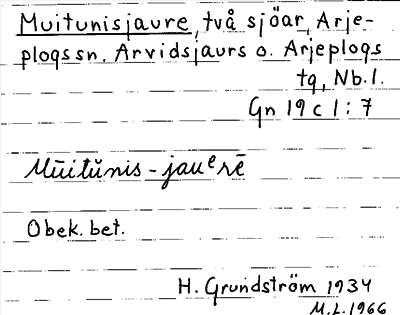 Muitunisjaure, två sjöar, Arje-
plogs sn. Arvidsjaurs o. Arjeplogs
tg, Nb. l.
Gn 19 c 1 : 7
Mūitŭnis - jauᵉrē
Obek. bet.
H. Grundström 1934
M.L. 1966